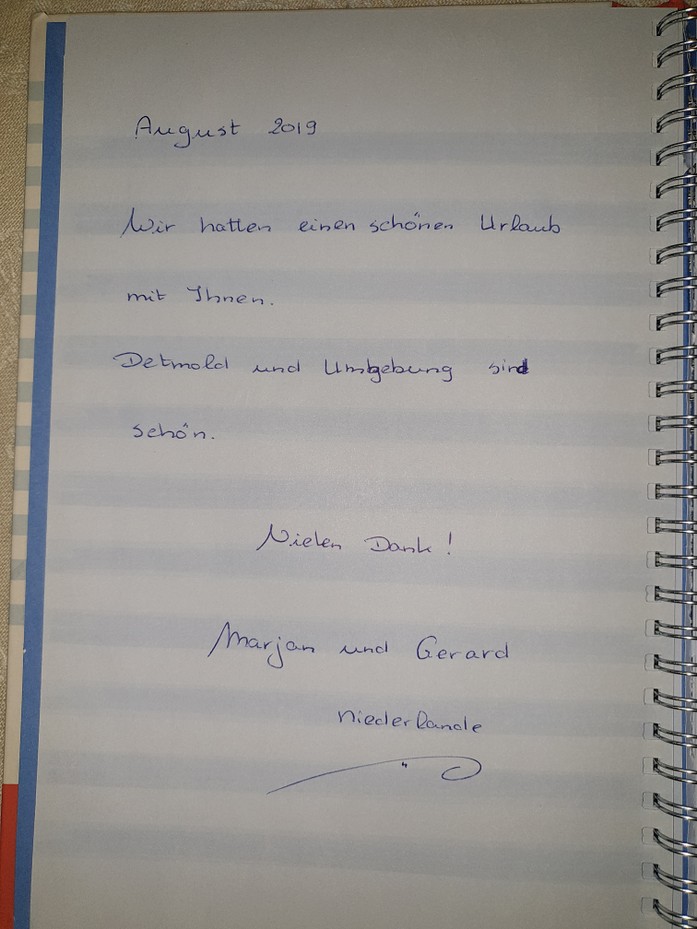 August 2019
Wir hatten einen schönen Urlaub
mit Ihnen.
Detmold und Umgebung sind
schön.
Vielen Dank!
Marjan und Gerard
Niederlande